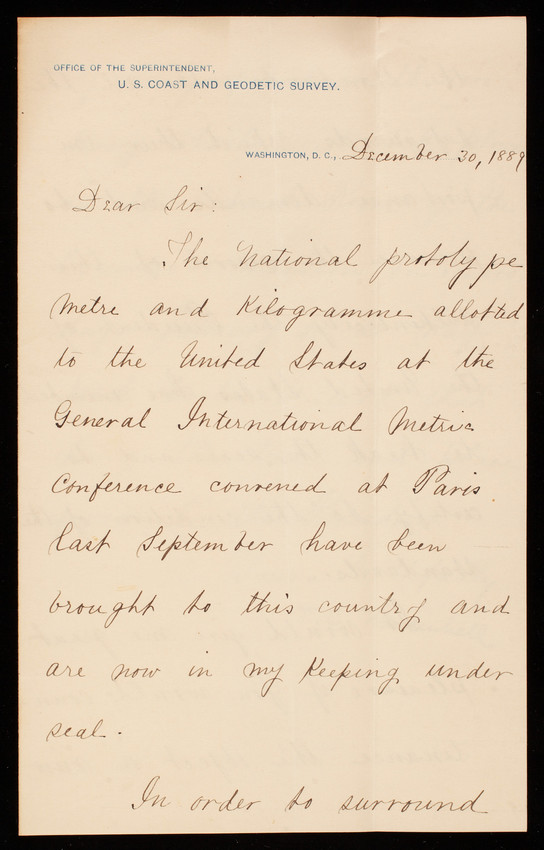 OFFICE OF THE SUPERINTENDENT,
U. S. COAST AND GEODETIC SURVEY.
WASHINGTON, D. C., December 30, 1889
Dear Sir:
The National prototype
metre and Kilogramme allotted
to the United States at the
General International Metric
Conference convened at Paris
last September have been
brought to this country and
are now in my keeping under
seal.
In order to surround